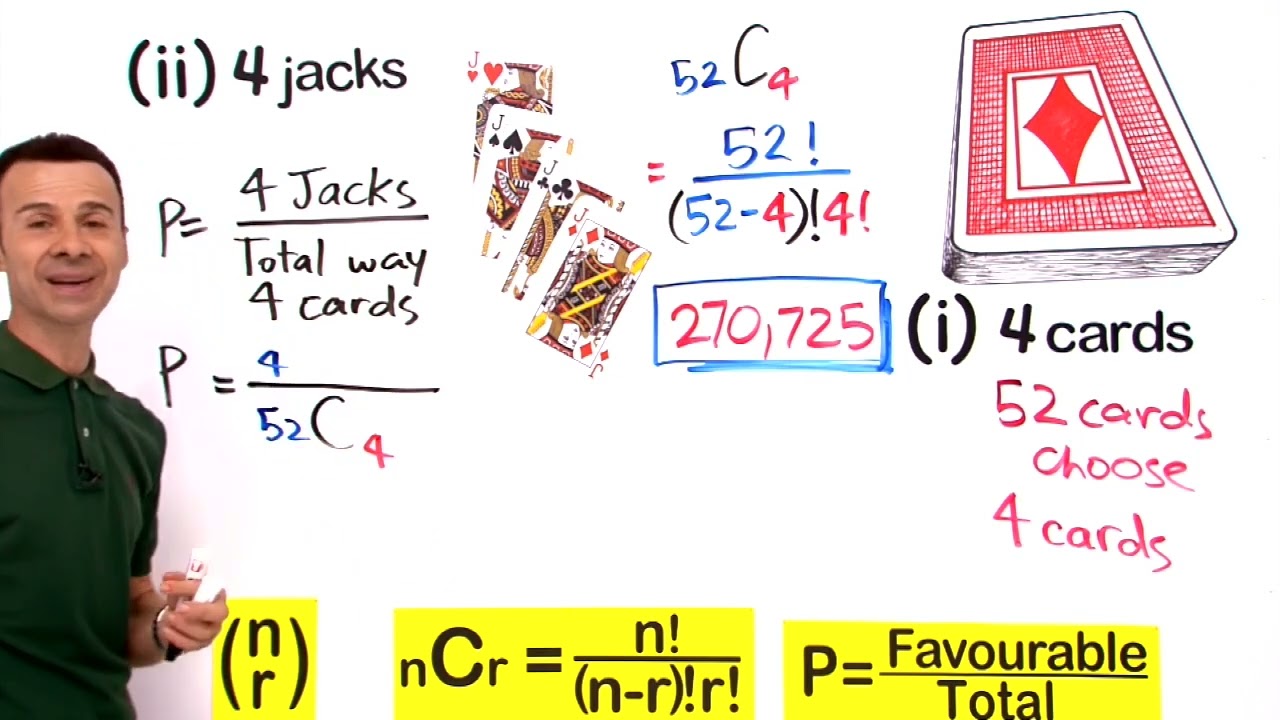 (ii) 4 jacks
P= 4 Jacks
Total way
4 cards
P = 4
52C4
J
J
J
J
J
52C4
= 52!
(52-4)!4!
270,725
(i) 4 cards
52 cards
choose
4 cards
(n
r)
nCr = n!
(n-r)!r!
P= Favourable
Total